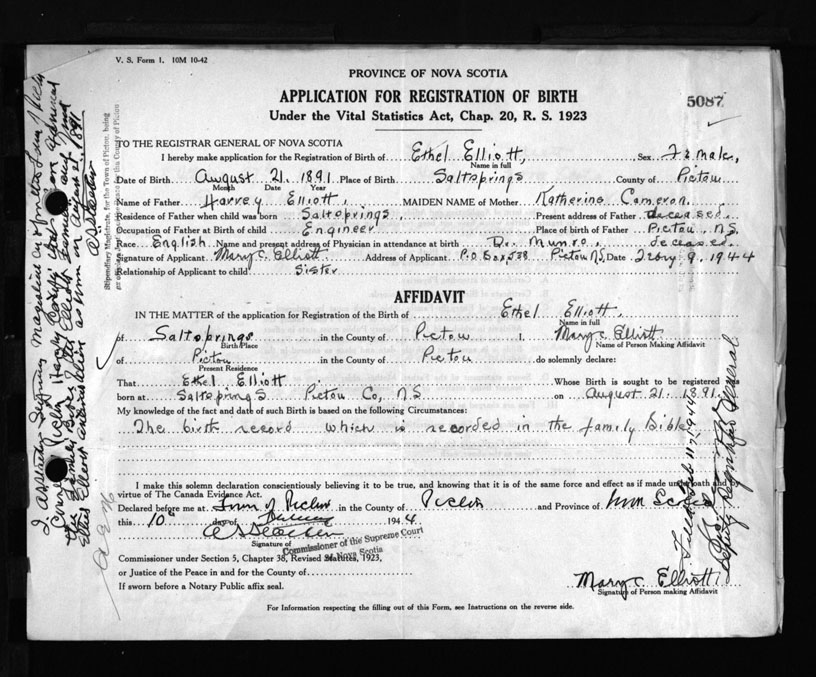 V. S. Form 1. 10M 10-42
PROVINCE OF NOVA SCOTIA
APPLICATION FOR REGISTRATION OF BIRTH
5087
Under the Vital Statistics Act, Chap. 20, R. S. 1923
TO THE REGISTRAR GENERAL OF NOVA SCOTIA
I hereby make application for the Registration of Birth of Ethel Elliott, Sex Female,
Name in full
Date of Birth August 21. 1891 Place of Birth Saltsprings County of Pictou
Month Date Year
Name of Father Harvey Elliott, MAIDEN NAME of Mother Katherine Cameron.
Residence of Father when child was born Saltsprings, Present address of Father deceased.
Occupation of Father at Birth of child Engineer Place of birth of Father Pictou, N.S.
Race English Name and present address of Physician in attendance at birth Dr. Munro, deceased.
Signature of Applicant Mary C. Elliott Address of Applicant P.O Box, 538 Pictou NS, Date Febry 9, 1944
Relationship of Applicant to child Sister
AFFIDAVIT
IN THE MATTER of the application for Registration of the Birth of Ethel Elliott,
Name in full
of Saltsprings in the County of Pictou I, Mary C Elliott
Birth Place
Name of Person Making Affidavit
of Pictou in the County of Pictou do solemnly declare:
Present Residence
That Ethel Elliott Whose Birth is sought to be registered
born at Saltsprings Pictou Co, N.S on August 21. 1891.
My knowledge of the fact and date of such Birth is based on the following Circumstances:
The birth record which is recorded in the family Bible
I make this solemn declaration conscientiously believing it to be true, and knowing that it is of the same force and effect as if made under oath and by
virtue of The Canada Evidence Act.
Declared before me at Town of Pictou in the County of Pictou and Province of Nova Scotia
this 10 day of February 1944
Signature of
Commissioner of the Supreme Court
of Nova Scotia
Commissioner under Section 5, Chapter 38, Revised Statutes, 1923,
or Justice of the Peace in and for the County of
If sworn before a Notary Public affix seal.
Mary C Elliott
Signature of Person making Affidavit
For Information respecting the filling out of this Form, see Instructions on the reverse side.
Stipendiary Magistrate, for the Town of Pictou, being
Deputy Registrar General